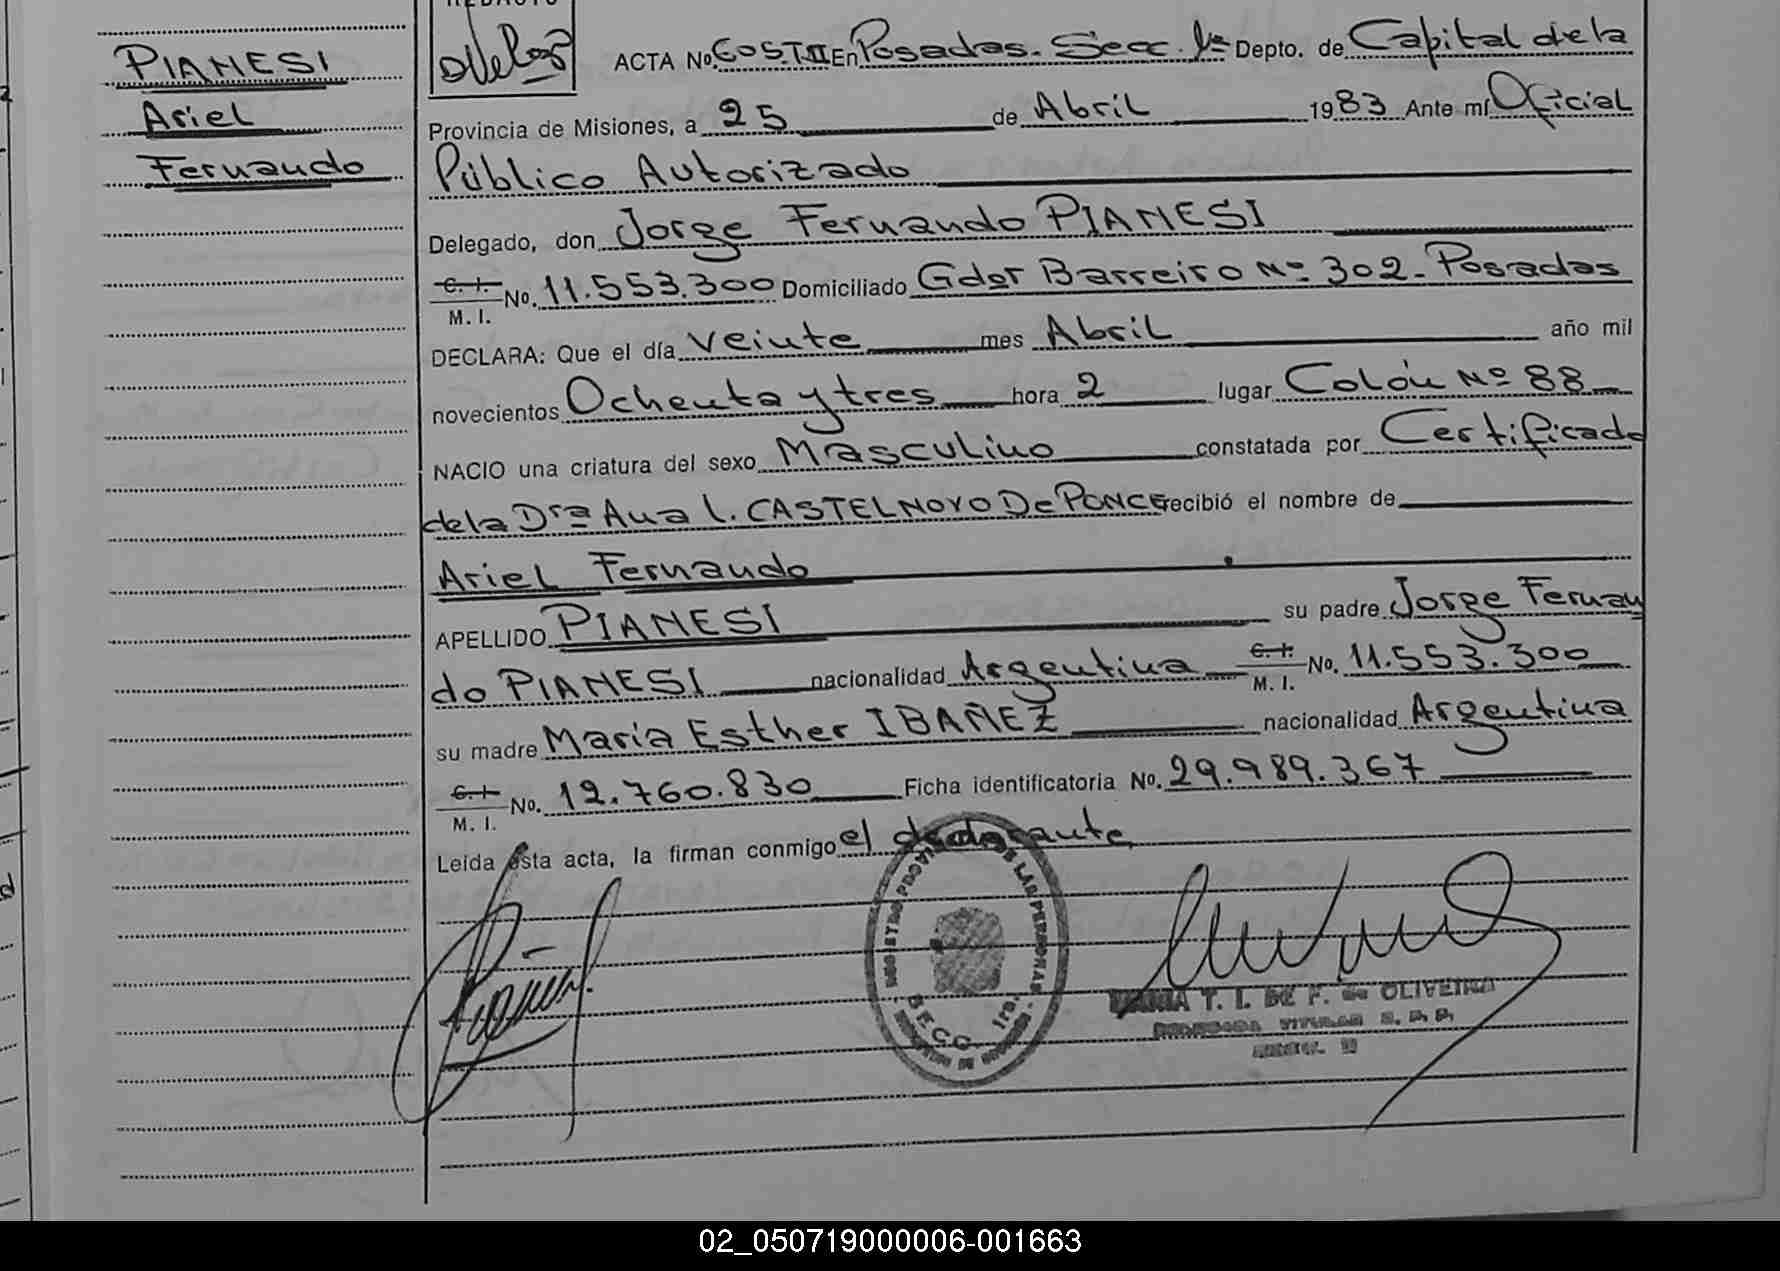 PIANESI
Ariel
Fernando
ACTA No. 605.T.II En Posadas. Secc. 1ª Depto. de Capital de la
Provincia de Misiones, a 25 de Abril 1983 Ante mí Oficial
Público Autorizado
Delegado, don Jorge Fernando PIANESI
C. I. No. 11.553.300 Domiciliado Gdor Barreiro Nº 302 - Posadas
M. I.
DECLARA: Que el día veinte mes Abril año mil
novecientos Ochenta y tres hora 2 lugar Colón Nº 88
NACIO una criatura del sexo Masculino constatada por Certificado
de la Drª Ana l. CASTELNOVO De PONCE recibió el nombre de
Ariel Fernando
APELLIDO PIANESI su padre Jorge Fernan
do PIANESI nacionalidad Argentina C. I. No. 11.553.300
M. I.
su madre María Esther IBAÑEZ nacionalidad Argentina
C. I. No. 12.760.830 Ficha identificatoria No. 29.989.367
M. I.
Leida esta acta, la firman conmigo el declarante
REGISTRO PROVINCIAL DE LAS PERSONAS
MARIA T. I. DE F. de OLIVEIRA
TITULAR R. P. P.
02_050719000006-001663